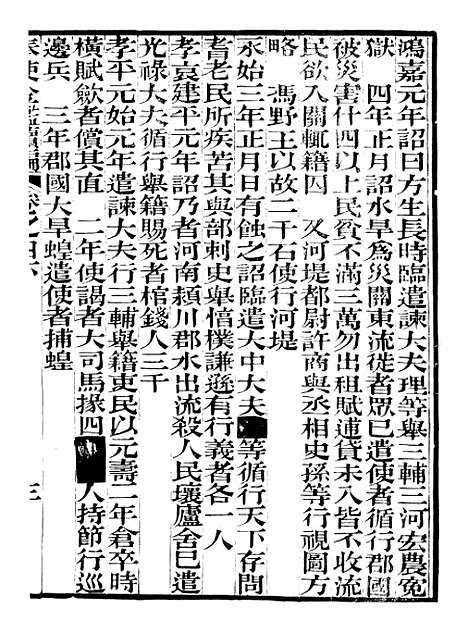 鴻嘉元年詔曰方生長時臨遣諫大夫理等舉三輔三河宏農冤
獄　四年正月詔水旱爲災關東流徙者眾已遣使者循行郡國
被災害什四以上民貲不滿三萬勿出租賦逋貸未入皆不收流
民欲入關輒籍內　又河堤都尉許商與丞相史孫等行視圖方
略　馮野王以故二千石使行河堤
永始三年正月日有蝕之詔臨遣大中大夫等循行天下存問
耆老民所疾苦其與部刺史舉惇樸謙遜有行義者各一人
孝哀建平元年詔乃者河南潁川郡水出流殺人民壞廬舍已遣
光祿大夫循行舉籍賜死者棺錢人三千
孝平元始元年遣諫大夫行三輔舉籍吏民以元壽二年倉卒時
橫賦斂者償其直　二年使謁者大司馬掾四人持節行巡
邊兵　三年郡國大旱蝗遣使者捕蝗
三